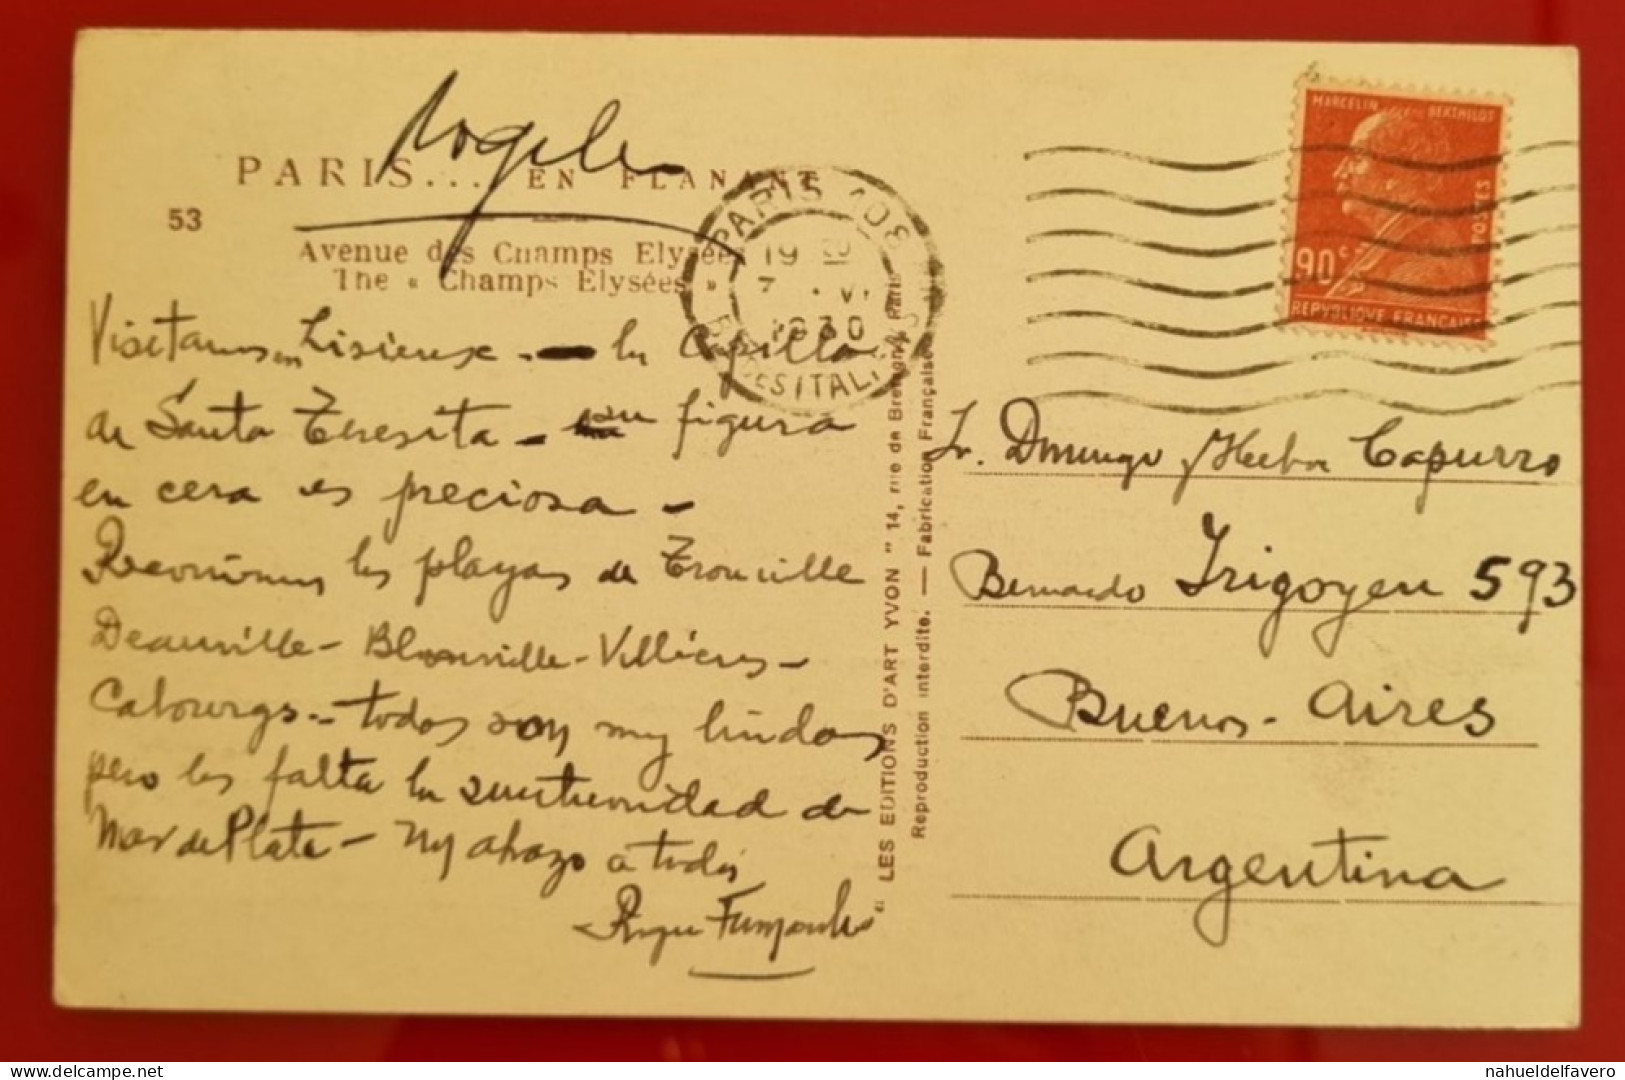 PARIS... EN FLANANT
53
Avenue des Champs Elysées
The « Champs Elysées »
Visitamos en Lisieux - la Capilla
de Santa Teresita - su figura
en cera es preciosa -
Recorrimos las playas de Trouville
Deauville - Blonville - Villiers -
Cabourgs - todas son muy lindas
pero les falta la suntuosidad de
Mar del Plata - Un abrazo a todos
Roque
PARIS 108
19
7 · VI
1930
Bd DES ITALIENS
MARCELIN BERTHELOT
POSTES
90c
REPVBLIQVE FRANÇAISE
" LES EDITIONS D'ART YVON " 14, rue de Bretagne, Paris
Reproduction interdite. — Fabrication Française
Sr. Domingo Hector Capurro
Bernardo Irigoyen 593
Buenos - Aires
Argentina
delcampe.net
nahueldelfavero